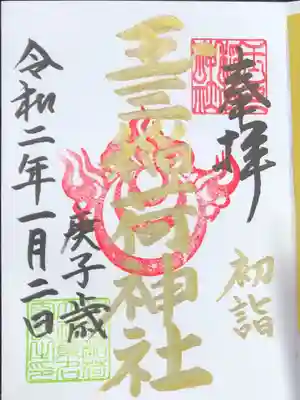 奉拝
初詣
王子稲荷神社
庚子歳
令和二年一月二日